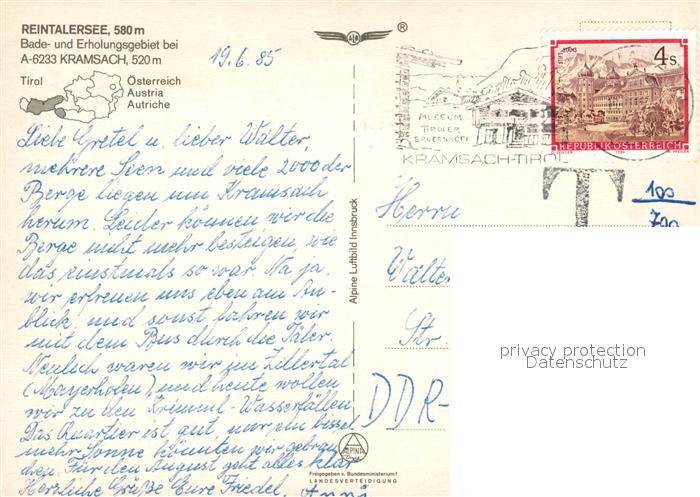 REINTALERSEE, 580 m
Bade- und Erholungsgebiet bei
A-6233 KRAMSACH, 520 m
Tirol
Österreich
Austria
Autriche
19.6.85
Liebe Gretel u. lieber Walter,
mehrere Seen und viele 2000der
Berge liegen um Kramsach
herum. Leider können wir die
Berge nicht mehr besteigen, wie
das einstmals so war. Na ja,
wir erfreuen uns eben am An-
blick, und sonst fahren wir
mit dem Bus durch die Täler.
Neulich waren wir im Zillertal
(Mayerhofen), und heute wollen
wir zu den Krimml-Wasserfällen.
Das Quartier ist gut, nur ein bissel
mehr Sonne könnten wir gebrau-
chen. Für den August geht alles klar
Herzliche Grüße Eure Friedel, Anni
Alpine Luftbild Innsbruck
ALPINA
Freigegeben v. Bundesministerium f.
LANDESVERTEIDIGUNG
®
MUSEUM
TIROLER
BAUERNHÖFE
KRAMSACH-TIROL
STIFT STAMS
4 S
REPUBLIK ÖSTERREICH
T
100
700
Herrn
Walter
Str.
DDR-
privacy protection
Datenschutz